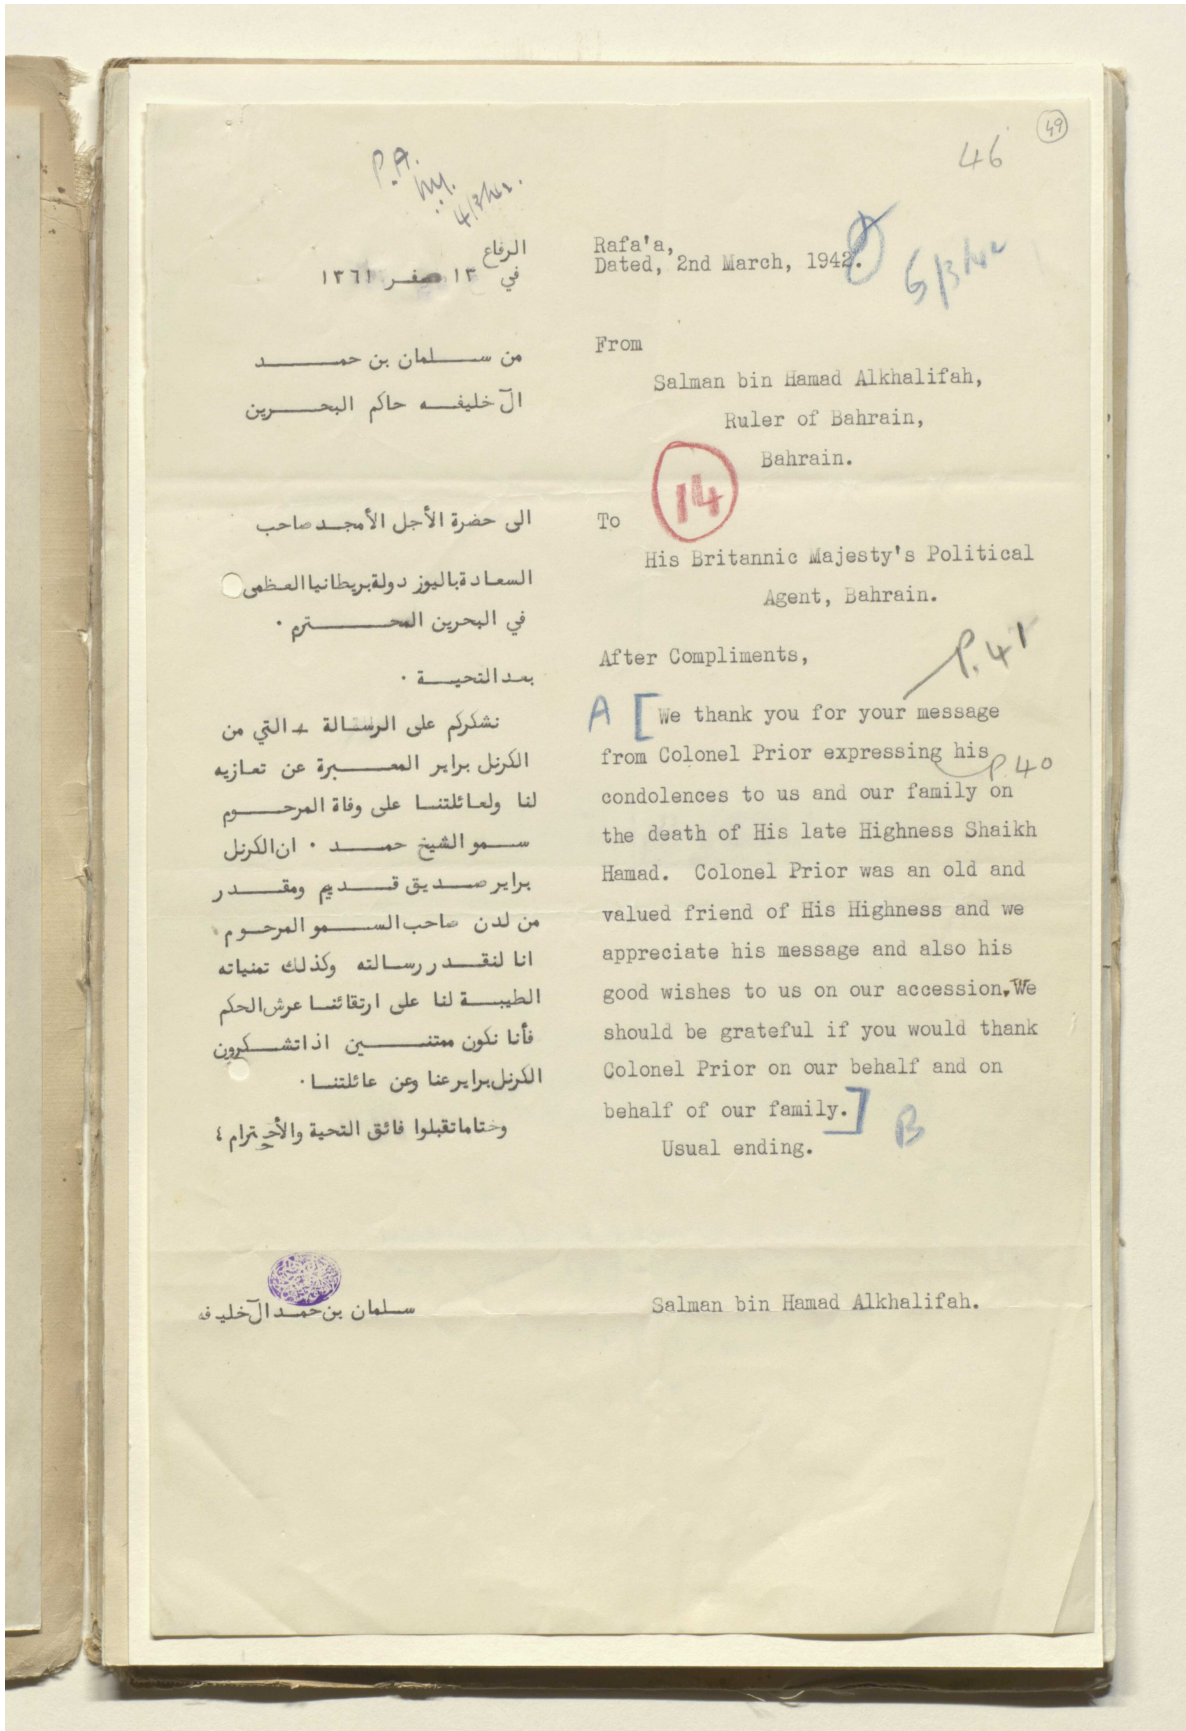 49
46
P.A.
4/3/42.
الرفاع
في ١٣ صفر ١٣٦١
من سلمان بن حمد
آل خليفه حاكم البحرين
الى حضرة الأجل الأمجد صاحب
السعادة باليوز دولة بريطانيا العظمى
في البحرين المحترم .
بعد التحية .
نشكركم على الرسالة التي من
الكرنل براير المعبرة عن تعازيه
لنا ولعائلتنا على وفاة المرحوم
سمو الشيخ حمد . ان الكرنل
براير صديق قديم ومقدر
من لدن صاحب السمو المرحوم .
انا لنقدر رسالته وكذلك تمنياته
الطيبة لنا على ارتقائنا عرش الحكم
فأنا نكون ممتنين اذا تشكرون
الكرنل براير عنا وعن عائلتنا .
وختاما تقبلوا فائق التحية والأحترام ؛
سلمان بن حمد آل خليفه
Rafa'a,
Dated, 2nd March, 1942.
5/3/42
From
Salman bin Hamad Alkhalifah,
Ruler of Bahrain,
Bahrain.
14
To
His Britannic Majesty's Political
Agent, Bahrain.
After Compliments,
P.41
A [We thank you for your message
from Colonel Prior expressing his
P.40
condolences to us and our family on
the death of His late Highness Shaikh
Hamad. Colonel Prior was an old and
valued friend of His Highness and we
appreciate his message and also his
good wishes to us on our accession. We
should be grateful if you would thank
Colonel Prior on our behalf and on
behalf of our family.] B
Usual ending.
Salman bin Hamad Alkhalifah.